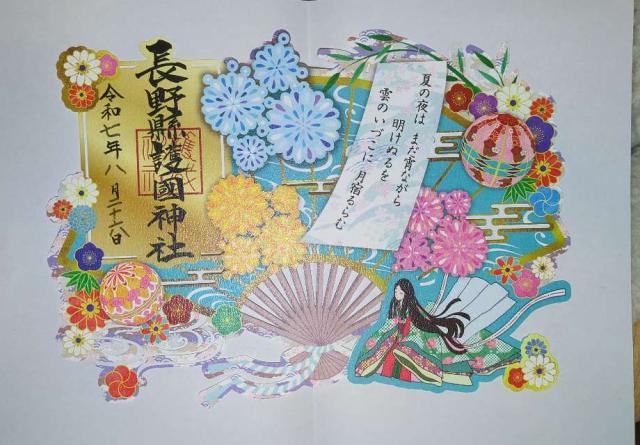 夏の夜は まだ宵ながら
明けぬるを
雲のいづこに 月宿るらむ
長野縣護國神社
令和七年八月二十八日